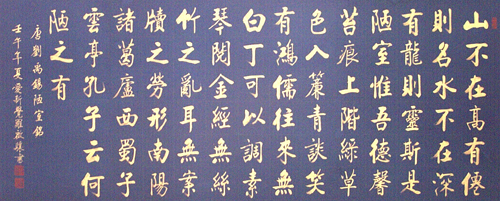 山不在高有僊
則名水不在深
有龍則靈斯是
陋室惟吾德馨
苔痕上階綠草
色入簾青談笑
有鴻儒往來無
白丁可以調素
琴閱金經無絲
竹之亂耳無案
牘之勞形南陽
諸葛廬西蜀子
雲亭孔子云何
陋之有
唐劉禹錫陋室銘
壬午年夏愛新覺羅啟驤書